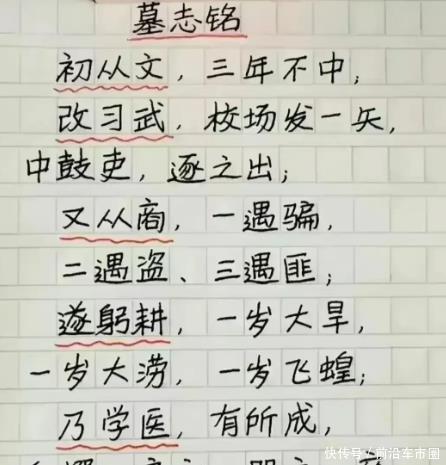 墓志铭
初从文，三年不中；
改习武，校场发一矢，
中鼓吏，逐之出；
又从商，一遇骗，
二遇盗、三遇匪；
遂躬耕，一岁大旱，
一岁大涝，一岁飞蝗；
乃学医，有所成，
快传号／前沿车市圈